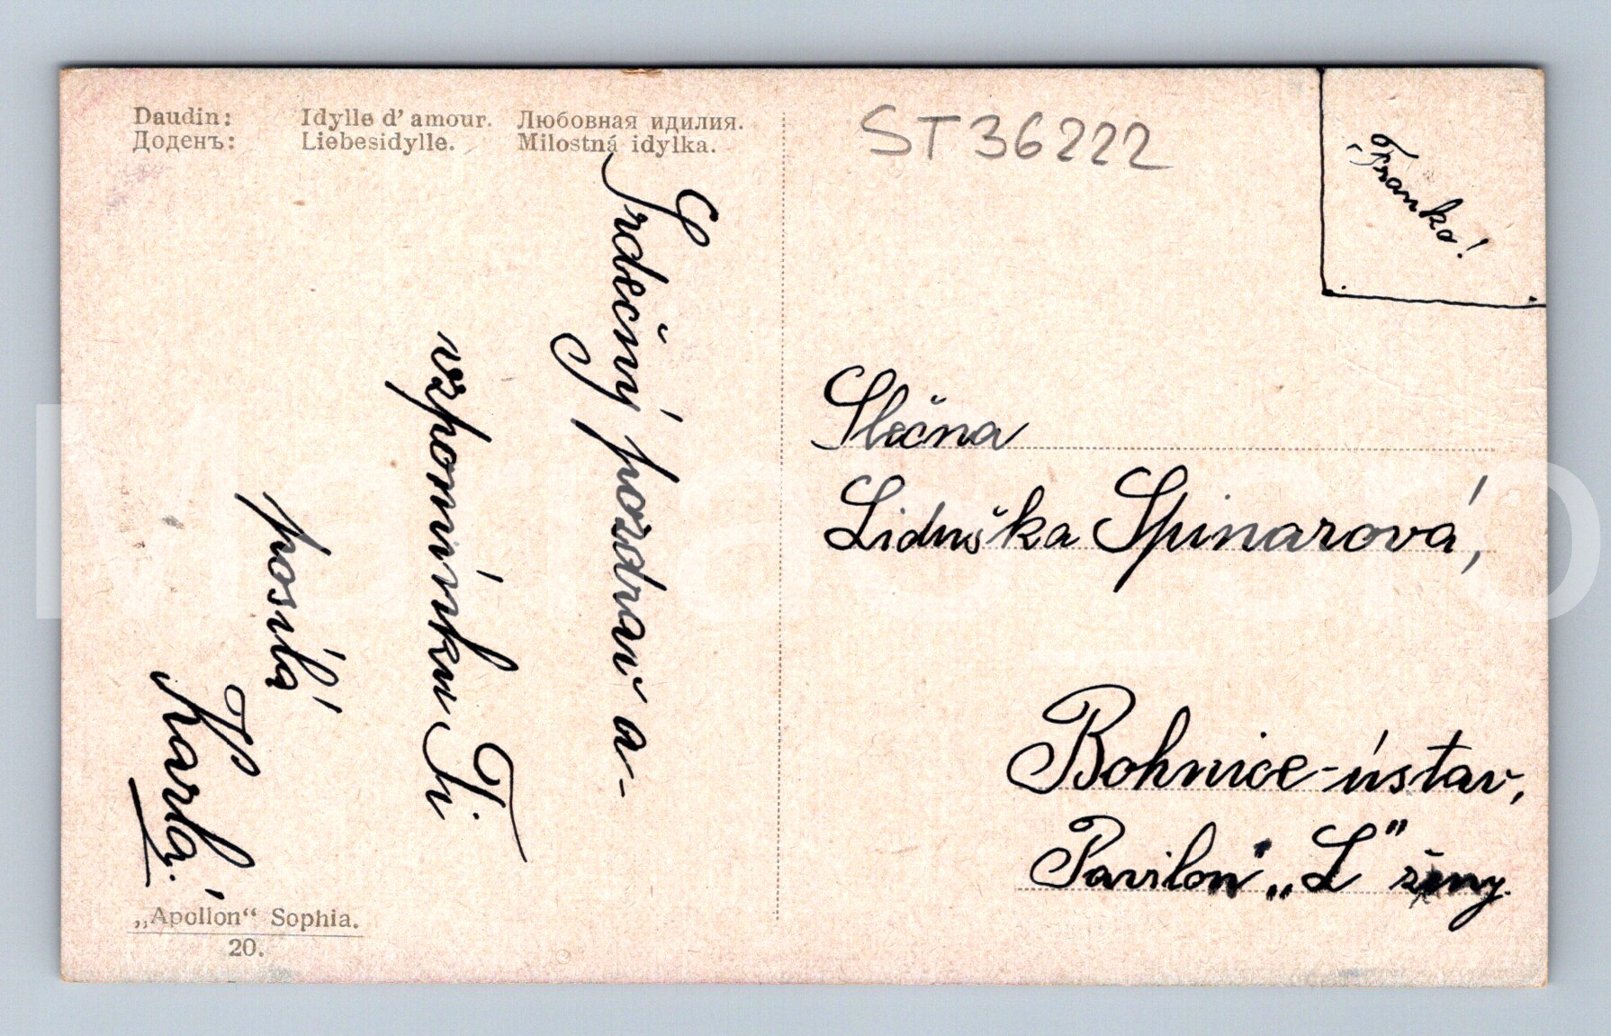 Daudin: Idylle d'amour. Любовная идилия.
Доденъ: Liebesidylle. Milostná idylka.
ST36222
Franko!
Srdečný pozdrav a-
vzpomínku Ti
posílá
Karla.
Slečna
Liduška Spinarová,
Bohnice-ústav,
Pavilon „L" ženy.
„Apollon“ Sophia.
20.